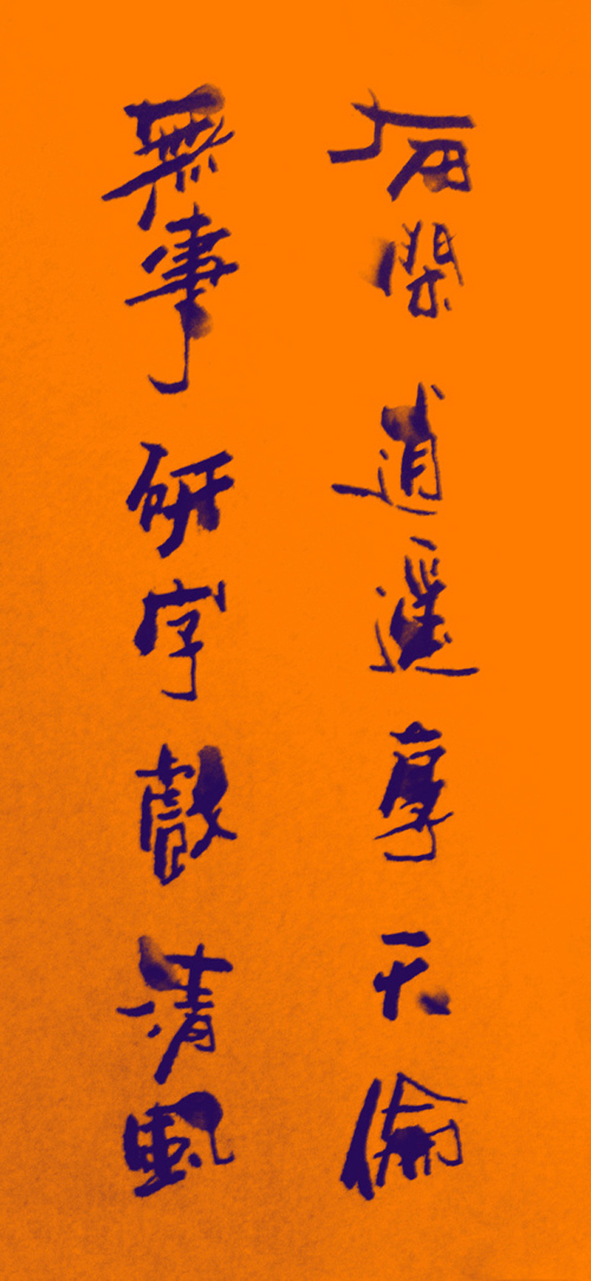 有閑逍遥享天倫
無事研字戲清風